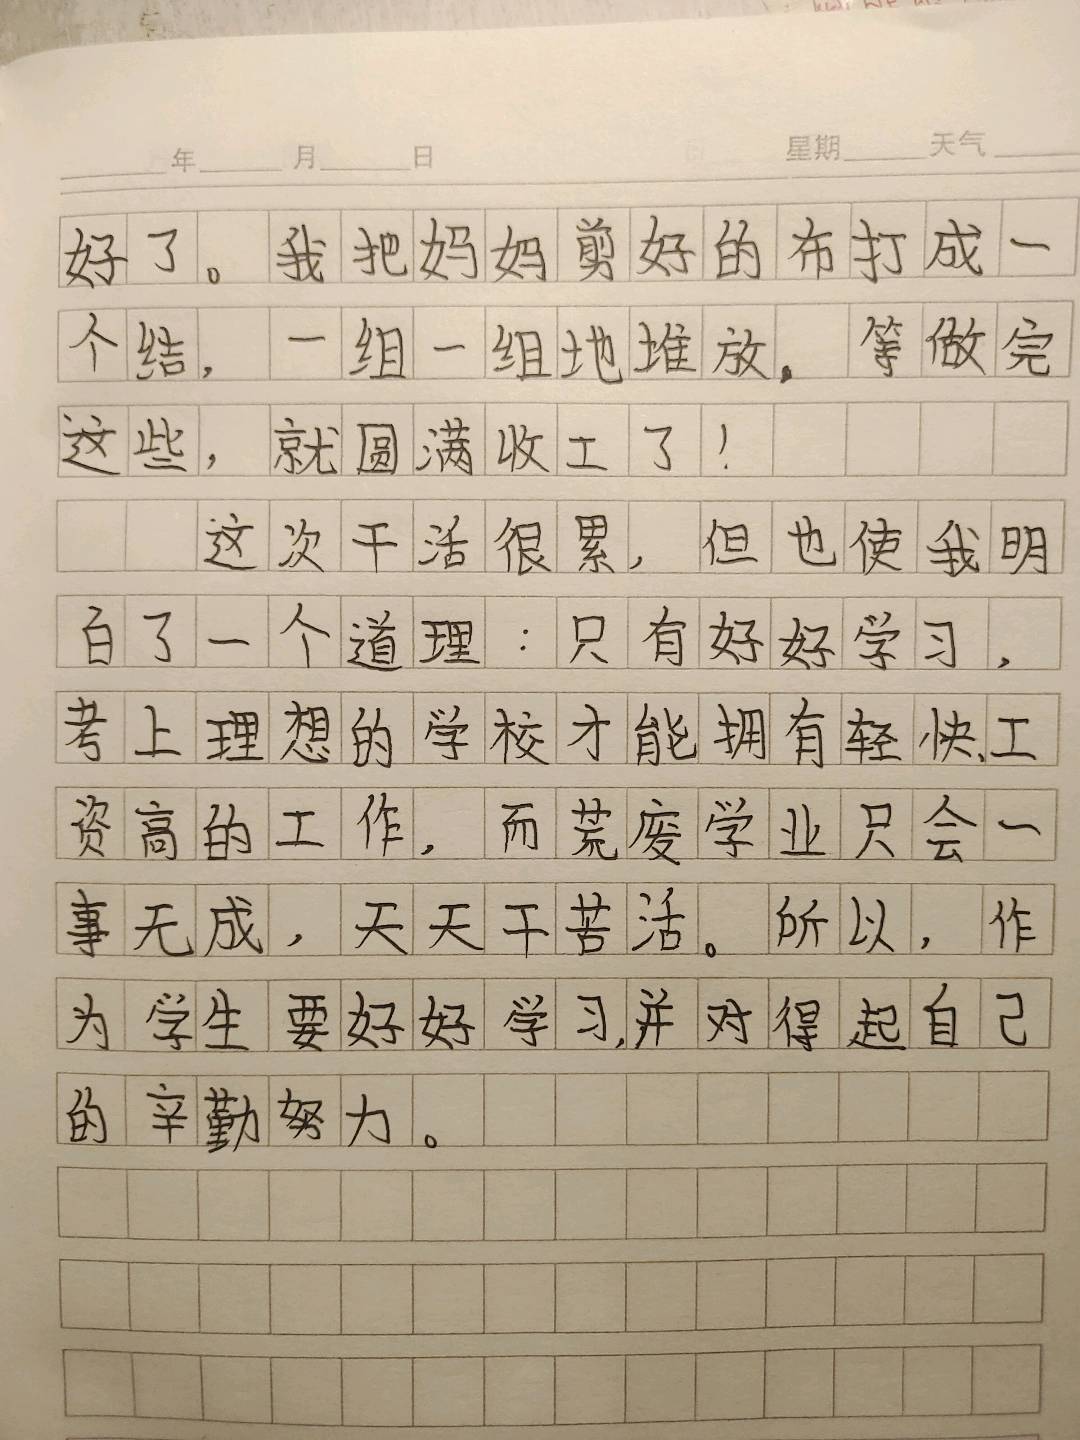 年 月 日 星期 天气
好了。我把妈妈剪好的布打成一
个结，一组一组地堆放。等做完
这些，就圆满收工了！
这次干活很累，但也使我明
白了一个道理：只有好好学习，
考上理想的学校才能拥有轻快、工
资高的工作，而荒废学业只会一
事无成，天天干苦活。所以，作
为学生要好好学习，并对得起自己
的辛勤努力。